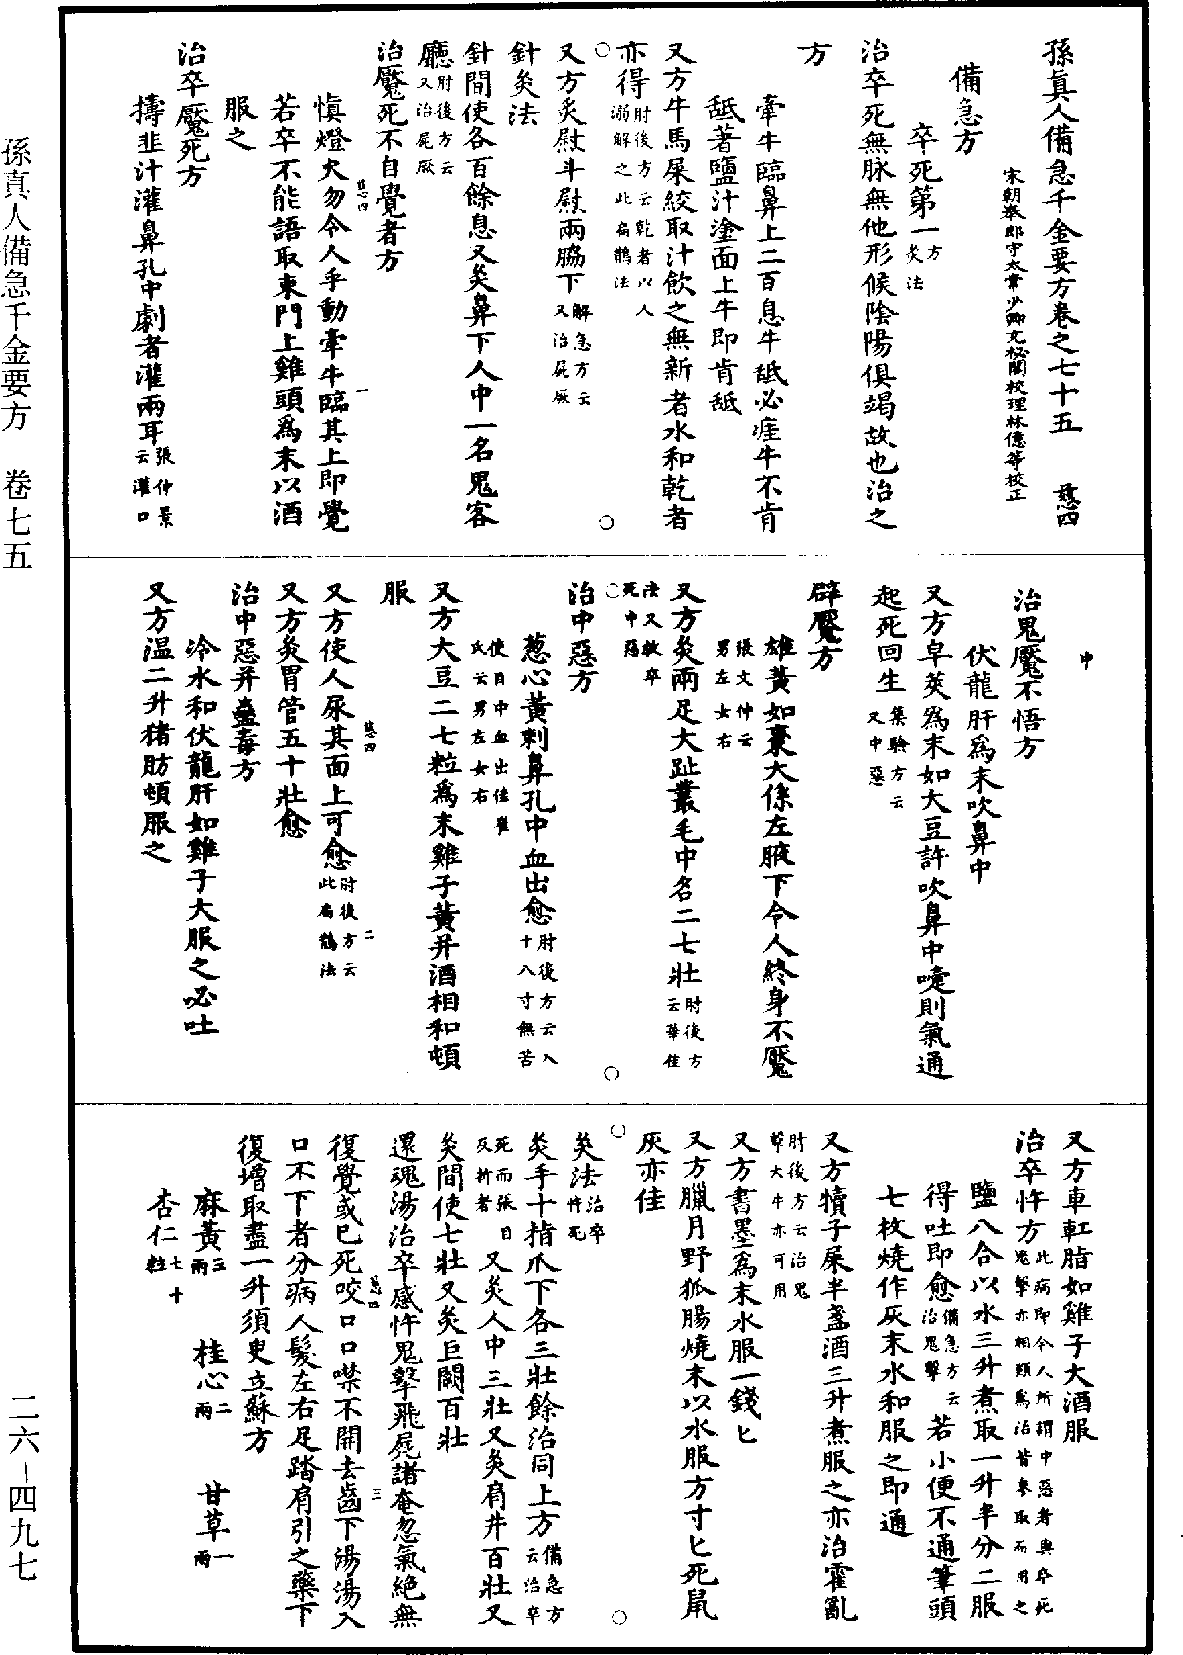 孫真人備急千金要方卷之七十五　慈四
宋朝奉郎守太常少卿充秘閣校理林億等校正
備急方
卒死第一方灸法
治卒死無脉無他形候陰陽俱竭故也治之
方
牽牛臨鼻上二百息牛舐必瘥牛不肯
舐著鹽汁塗面上牛即肯舐
又方牛馬屎絞取汁飲之無新者水和乾者
亦得肘後方云乾者以人溺解之此扁鵲法
又方炙慰斗慰兩脇下解急方云又治屍厥
針灸法
針間使各百餘息又灸鼻下人中一名鬼客
廳肘後方云又治屍厥
治魘死不自覺者方
慎燈火勿令人手動牽牛臨其上即覺
若卒不能語取東門上雞頭爲末以酒
服之
治卒魘死方
擣韭汁灌鼻孔中劇者灌兩耳張仲景云灌口
慈四
一
中
治鬼魘不悟方
伏龍肝爲末吹鼻中
又方皁莢爲末如大豆許吹鼻中嚏則氣通
起死回生集驗方云又中惡
辟魘方
雄黃如棗大係左腋下令人終身不魘
張文仲云男左女右
又方灸兩足大趾叢毛中名二七壯肘後方云華佗
法又救卒死中惡
治中惡方
葱心黃刺鼻孔中血出愈肘後方云入十八寸無苦
使目中血出佳崔氏云男左女右
又方大豆二七粒爲末雞子黃并酒相和頓
服
又方使人尿其面上可愈肘後方云此扁鵲法
又方灸胃管五十壯愈
治中惡并蠱毒方
冷水和伏龍肝如雞子大服之必吐
又方温二升猪肪頓服之
慈四
二
又方車缸脂如雞子大酒服
治卒忤方此病即今人所謂中惡者與卒死鬼擊亦相類爲治皆參取而用之
鹽八合以水三升煮取一升半分二服
得吐即愈備急方云治鬼擊若小便不通筆頭
七枚燒作灰末水和服之即通
又方犢子屎半盞酒三升煮服之亦治霍亂
肘後方云治鬼擊大牛亦可用
又方書墨爲末水服一錢匕
又方臘月野狐腸燒末以水服方寸匕死鼠
灰亦佳
灸法治卒忤死
灸手十指爪下各三壯餘治同上方備急方云治卒
死而張目反折者又灸人中三壯又灸肩井百壯又
灸間使七壯又灸巨闕百壯
還魂湯治卒感忤鬼擊飛屍諸奄忽氣絶無
復覺或已死咬口口噤不開去齒下湯湯入
口不下者分病人髪左右足踏肩引之藥下
復增取盡一升須臾立蘇方
麻黃三兩　桂心二兩　甘草一兩
杏仁七十粒
慈四
三
孫真人備急千金要方　卷七五
二六–四九七